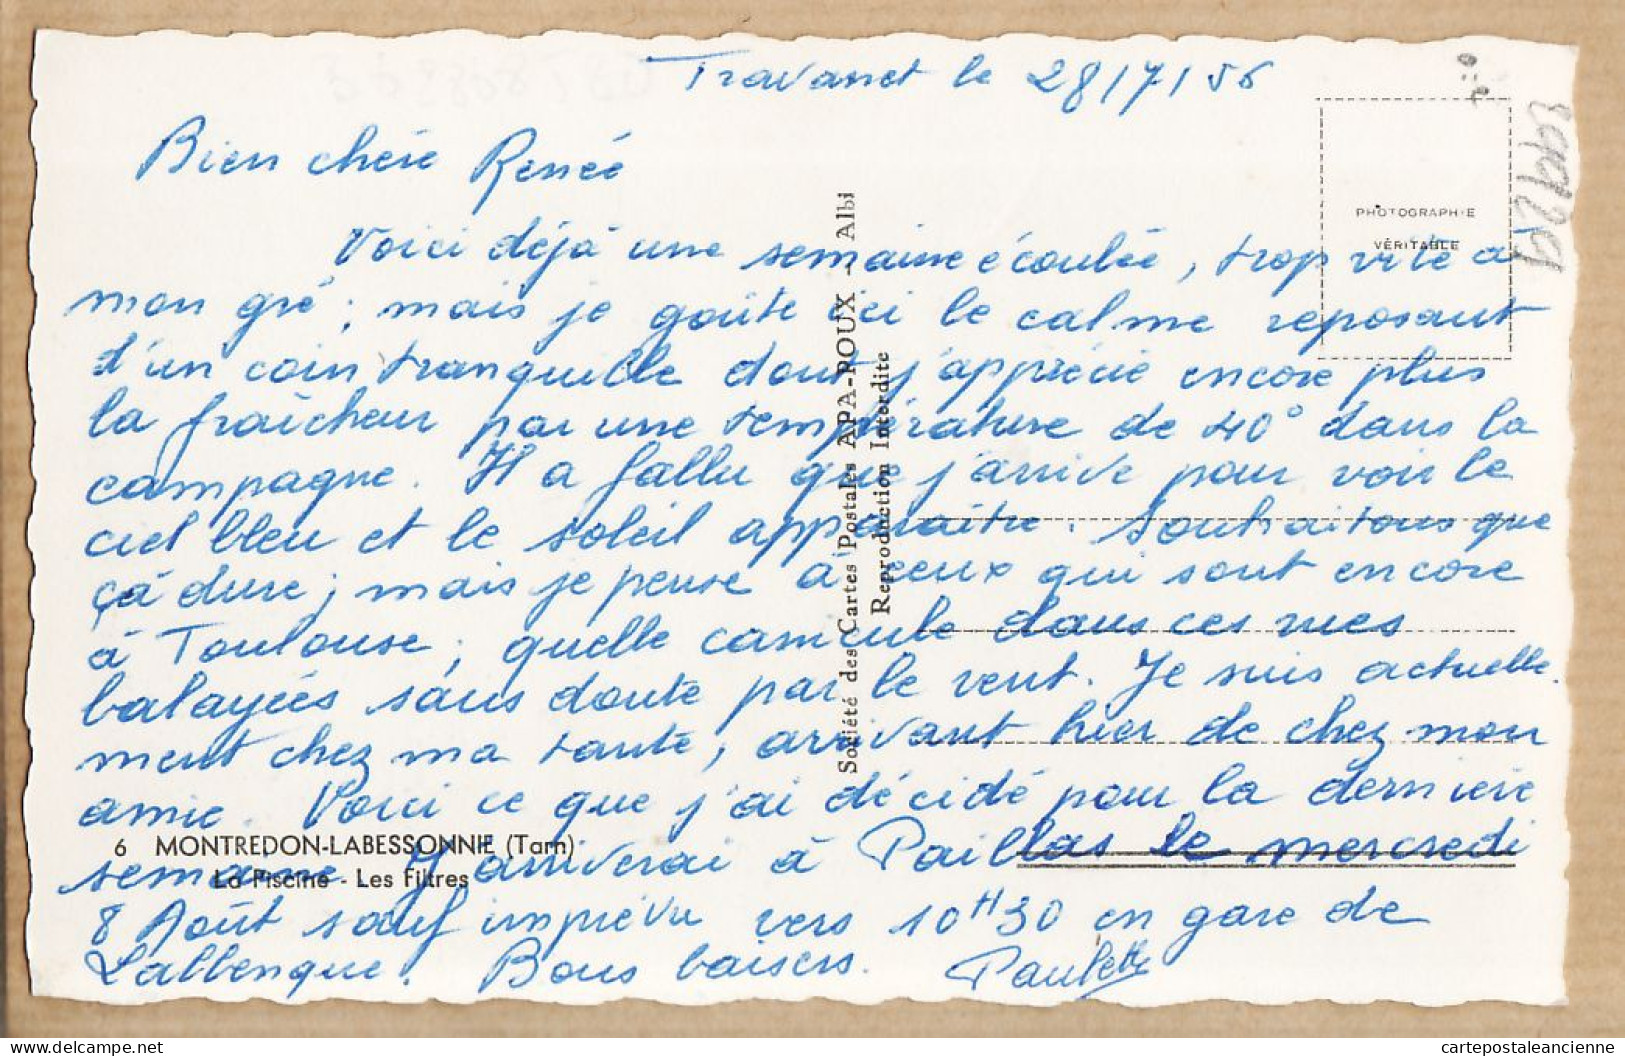 Travanet le 28/7/56
Bien chérie Renée
Voici déjà une semaine écoulée, trop vite à
mon gré; mais je goûte ici le calme reposant
d'un coin tranquille dont j'apprécie encore plus
la fraîcheur par une température de 40° dans la
campagne. Il a fallu que j'arrive pour voir le
ciel bleu et le soleil apparaître. Souhaitons que
çà dure; mais je pense à ceux qui sont encore
à Toulouse; quelle canicule dans ces rues
balayées sans doute par le vent. Je suis actuelle-
ment chez ma tante, arrivant hier de chez mon
amie. Voici ce que j'ai décidé pour la dernière
semaine. J'arriverai à Paillas le mercredi
8 Août sauf imprévu vers 10H30 en gare de
Lalbenque. Bons baisers. Paulette
PHOTOGRAPHIE
VÉRITABLE
Société des Cartes Postales APA-POUX - Albi
Reproduction Interdite
6 MONTREDON-LABESSONNIE (Tarn)
La Piscine - Les Filtres
cartepostaleancienne
delcampe.net